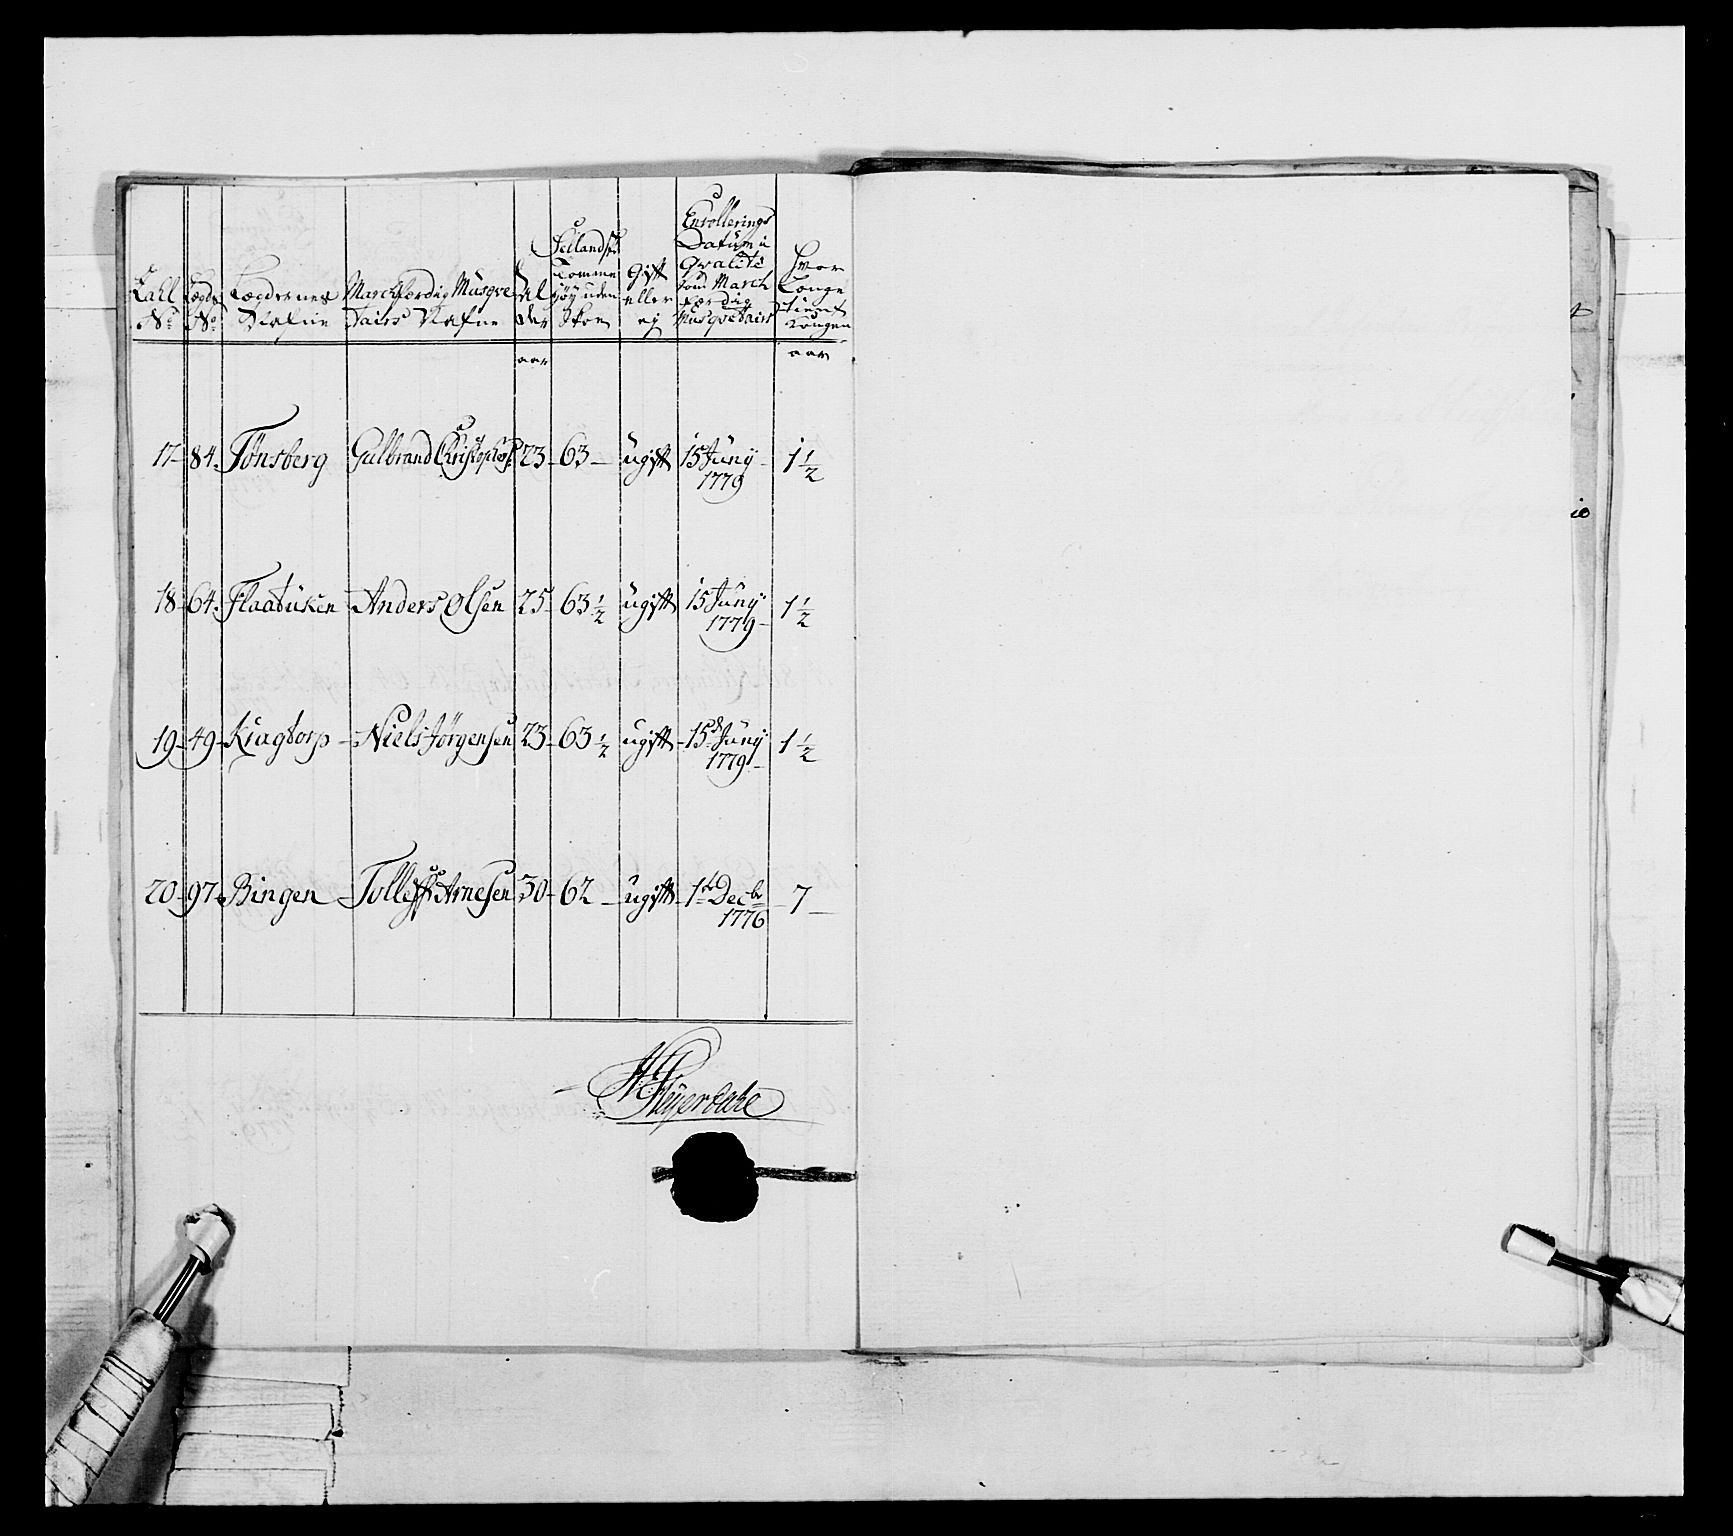 Tall No | Lægds No | Lægdernes Nafne | Marchfærdig Musqve tairs Nafne | Al der | Sellandske Tomme Høy uden Skoe | Gift eller ej | Enrollerings Datum i Qvalité som March færdig Musqvetairs | Hvor Længe tient Kongen
aar | aar
17 - 84. Tønsberg | Gulbrand Christophers: | 23 - 63 - | ugift | 15 Juny 1779 | 1 1/2
18 - 64. Flaatüken | Anders Olsen | 25 - 63 1/2 | ugift | 15 Juny 1779 - | 1 1/2
19 - 49 - Kragtorp - | Niels Jörgensen | 23 - 63 1/2 | ugift - | 15d Juny 1779 - | 1 1/2
20 - 97. Bingen - | Tolleff Arnesen | 30 - 62 - | ugift - | 1te Decbr 1776 - | 7 -